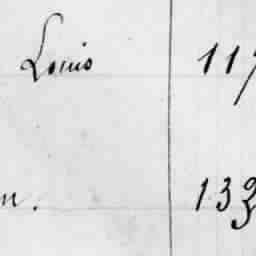 Louis 117
n. 133